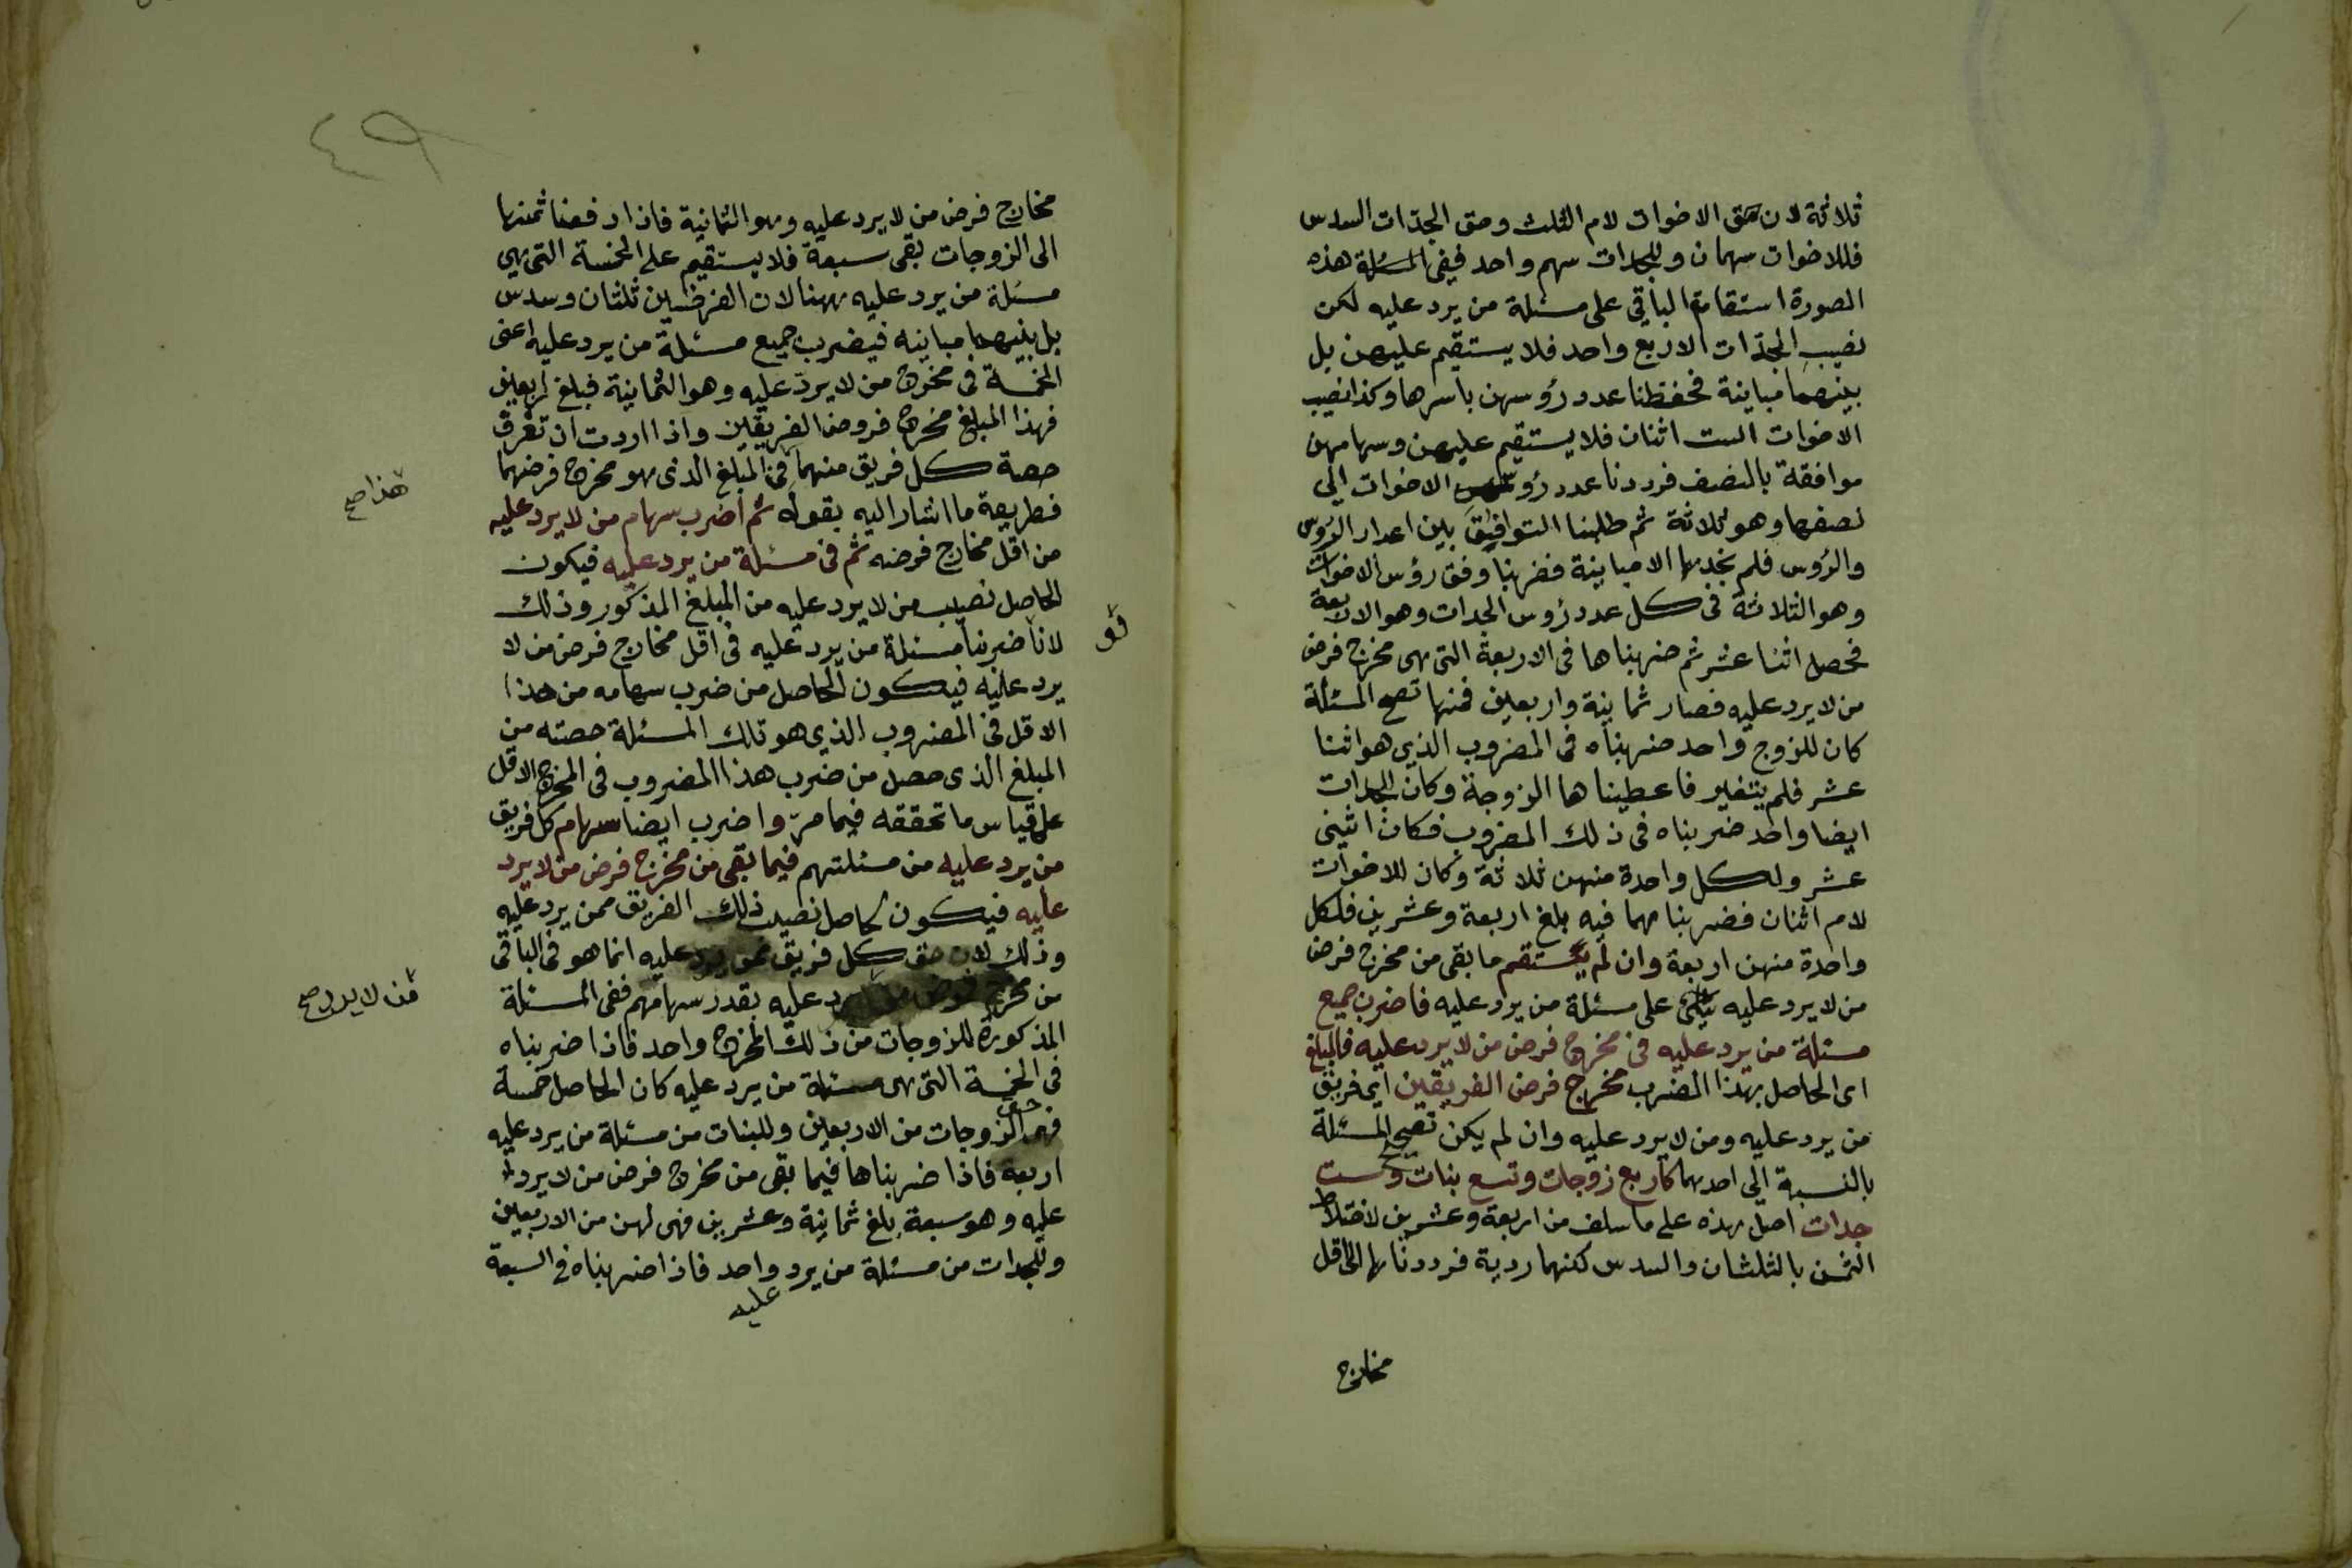 ثلاثة لان حق الاخوات لام الثلث وحق الجدّات السدس
فللاخوات سهمان وللجدات سهم واحد ففى المسئلة هذه
الصورة استقام الباقي على مسئلة من يرد عليه لكن
نصيب الجدّات الاربع واحد فلا يستقيم عليهن بل
بينهما مباينة فحفظنا عدد رؤسهن باسرها وكذا نصيب
الاخوات الست اثنان فلا يستقيم عليهن وسهامهن
موافقة بالنصف فرددنا عدد رؤس الاخوات الى
نصفها وهو ثلاثة ثم طلبنا التوافيق بين اعداد الرؤس
والرؤس فلم نجدها الا مباينة فضربنا وفق رؤس الاخوات
وهو الثلاثة فى كل عدد رؤس الجدات وهو الاربعة
فحصل اثنا عشر ثم ضربناها فى الاربعة التى هى مخرج فرض
من لا يرد عليه فصار ثمانية واربعين فمنها تصح المسئلة
كان للزوج واحد ضربناه فى المضروب الذي هو اثنا
عشر فلم يتغير فاعطيناها الزوجة وكان للجدات
ايضا واحد ضربناه فى ذلك المضروب فكان اثنى
عشر ولكل واحدة منهن ثلاثة وكان للاخوات
لام اثنان فضربناهما فيه بلغ اربعة وعشرين فلكل
واحدة منهن اربعة وان لم يستقم ما بقى من مخرج فرض
من لا يرد عليه على مسئلة من يرد عليه فاضرب جميع
مسئلة من يرد عليه فى مخرج فرض من لا يرد عليه فالمبلغ
اى الحاصل بهذا الضرب مخرج فرض الفريقين اى فريق
من يرد عليه ومن لا يرد عليه وان لم يكن تصح المسئلة
بالنسبة الى احدهما كاربع زوجات وتسع بنات وست
جدات اصل هذه على ما سلف من اربعة وعشرين لاختلاط
الثمن بالثلثان والسدس لكنهما ردية فرددناها الى اقل
مخارج
مخارج فرض من لا يرد عليه وهو الثمانية فاذا دفعنا ثمنها
الى الزوجات بقى سبعة فلا يستقيم على الخمسة التى هى
مسئلة من يرد عليه ههنا لان الفرضين ثلثان وسدس
بل بينهما مباينه فيضرب جميع مسئلة من يرد عليه اعنى
الخمسة فى مخرج من لا يردّ عليه وهو الثمانية فبلغ اربعين
فهذا المبلغ مخرج فروض الفريقين واذا اردت ان تعرف
حصة كل فريق منهما فى المبلغ الذى هو مخرج فرضهما
فطريقة ما اشار اليه بقوله ثم اضرب سهام من لا يرد عليه
هذا صح
من اقل مخارج فرضه ثم فى مسئلة من يرد عليه فيكون
الحاصل نصيب من لا يرد عليه من المبلغ المذكور وذلك
لانا ضربنا مسئلة من يرد عليه فى اقل مخارج فرض من لا
يرد عليه فيكون الحاصل من ضرب سهامه من هذا
الاقل فى المضروب الذي هو تلك المسئلة حصته من
المبلغ الذى حصل من ضرب هذا المضروب فى المخرج الاقل
على قياس ما تحققه فيما مرّ واضرب ايضا سهام كل فريق
من يرد عليه من مسئلتهم فيما بقى من مخرج فرض من لا يرد
عليه فيكون الحاصل نصيب ذلك الفريق ممن يرد عليه
وذلك لان حق كل فريق ممن يرد عليه انما هو فى الباقى
من مخرج فرض من يرد عليه بقدر سهامهم ففى المسئلة
من لا يرد صح
المذكورة للزوجات من ذلك المخرج واحد فاذا ضربناه
فى الخمسة التى هى مسئلة من يرد عليه كان الحاصل خمسة
فهى حق الزوجات من الاربعين وللبنات من مسئلة من يرد عليه
اربعة فاذا ضربناها فيما بقى من مخرج فرض من لا يرد
عليه وهو سبعة بلغ ثمانية وعشرين فهى لهن من الاربعين
وللجدات من مسئلة من يرد واحد فاذا ضربناه فى السبعة
عليه
٤٩